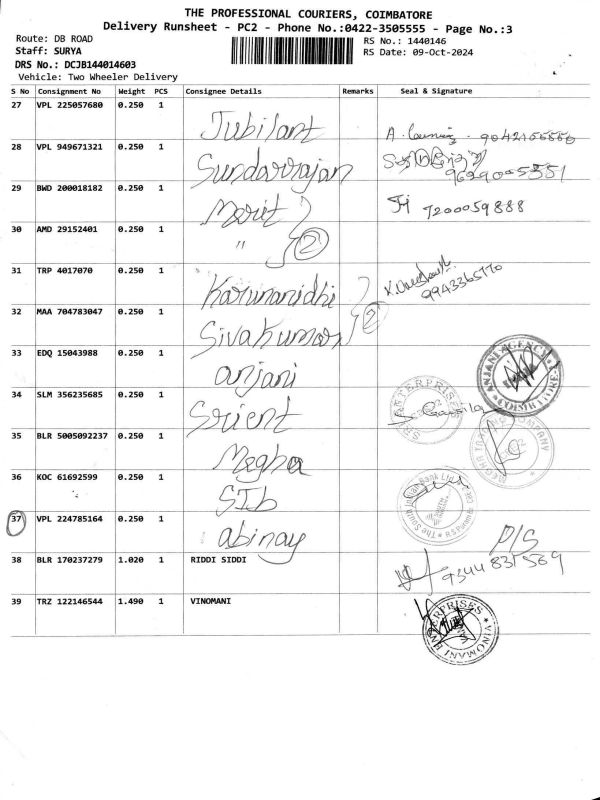 THE PROFESSIONAL COURIERS, COIMBATORE
Delivery Runsheet - PC2 - Phone No.:0422-3505555 - Page No.:3
Route: DB ROAD
RS No.: 1440146
Staff: SURYA
RS Date: 09-Oct-2024
DRS No.: DCJB144014603
Vehicle: Two Wheeler Delivery
S No Consignment No Weight PCS Consignee Details Remarks Seal & Signature
27 VPL 225057680 0.250 1 Jubilant
28 VPL 949671321 0.250 1 Sundarrajan 9629005351
29 BWD 200018182 0.250 1 Merit 7200059888
30 AMD 29152401 0.250 1 " 2
31 TRP 4017070 0.250 1 Karunanidhi 9943365770
32 MAA 704783047 0.250 1 Sivakumar 2
33 EDQ 15043988 0.250 1 anjani ANJANI AGENCY COIMBATORE
34 SLM 356235685 0.250 1 Srient ENTERPRISES
35 BLR 5005092237 0.250 1 Megha MEGHA TRADING COMPANY
36 KOC 61692599 0.250 1 SIb The South Indian Bank Ltd
37 VPL 224785164 0.250 1 abinay P/S
38 BLR 170237279 1.020 1 RIDDI SIDDI 9344835589
39 TRZ 122146544 1.490 1 VINOMANI VINOMANI ENTERPRISES